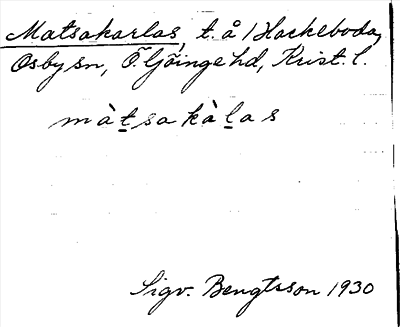 Matsakarlas, t. å 1 Hackeboda,
Osby sn, Ö. Göinge hd, Krist. l.
màt̲sakàl̲as
Sigv. Bengtsson 1930